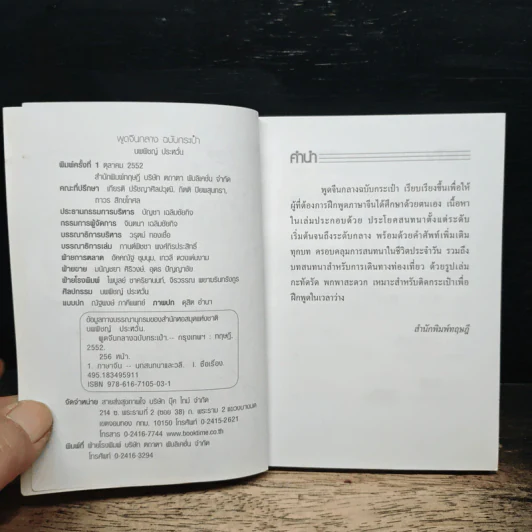 พูดจีนกลาง ฉบับกระเป๋า
นพพิชญ์ ประหวั่น
พิมพ์ครั้งที่ 1 ตุลาคม 2552
สำนักพิมพ์ทฤษฎี บริษัท ตถาตา พับลิเคชั่น จำกัด
คณะที่ปรึกษา เกียรติ ปรัชญาศิลปวุฒิ, กิตติ ปิยพสุนทรา,
ถาวร สิกขโกศล
ประธานกรรมการบริหาร บัญชา เฉลิมชัยกิจ
กรรมการผู้จัดการ จินตนา เฉลิมชัยกิจ
บรรณาธิการบริหาร วรุตม์ ทองเชื้อ
บรรณาธิการเล่ม กานต์พิชชา พงษ์ถิรประสิทธิ์
ฝ่ายการตลาด
ฝ่ายขาย
ฝ่ายโรงพิมพ์
ศิลปกรรม นพพิชญ์ ประหวั่น
แบบปก ณัฐพงษ์ ภาคีแพทย์ ภาพปก ดุสิต ขำมา
ข้อมูลทางบรรณานุกรมของสำนักหอสมุดแห่งชาติ
นพพิชญ์ ประหวั่น.
พูดจีนกลางฉบับกระเป๋า.-- กรุงเทพฯ : ทฤษฎี,
2552.
256 หน้า.
1. ภาษาจีน -- บทสนทนาและวลี. I. ชื่อเรื่อง.
495.183495911
ISBN 978-616-7105-03-1
จัดจำหน่าย สายส่งสุขภาพใจ บริษัท บุ๊ค ไทม์ จำกัด
214 ซ. พระรามที่ 2 (ซอย 38) ถ. พระราม 2 แขวงบางมด
เขตจอมทอง กทม. 10150 โทรศัพท์ 0-2415-2621
โทรสาร 0-2416-7744 www.booktime.co.th
พิมพ์ที่ ฝ่ายโรงพิมพ์ บริษัท ตถาตา พับลิเคชั่น จำกัด
โทรศัพท์ 0-2416-3294
คำนำ
พูดจีนกลางฉบับกระเป๋า เรียบเรียงขึ้นเพื่อให้
ผู้ที่ต้องการฝึกพูดภาษาจีนได้ศึกษาด้วยตนเอง เนื้อหา
ในเล่มประกอบด้วย ประโยคสนทนาตั้งแต่ระดับ
เริ่มต้นจนถึงระดับกลาง พร้อมด้วยคำศัพท์เพิ่มเติม
ทุกบท ครอบคลุมการสนทนาในชีวิตประจำวัน รวมถึง
บทสนทนาสำหรับการเดินทางท่องเที่ยว ด้วยรูปเล่ม
กะทัดรัด พกพาสะดวก เหมาะสำหรับติดกระเป๋าเพื่อ
ฝึกพูดในเวลาว่าง
สำนักพิมพ์ทฤษฎี